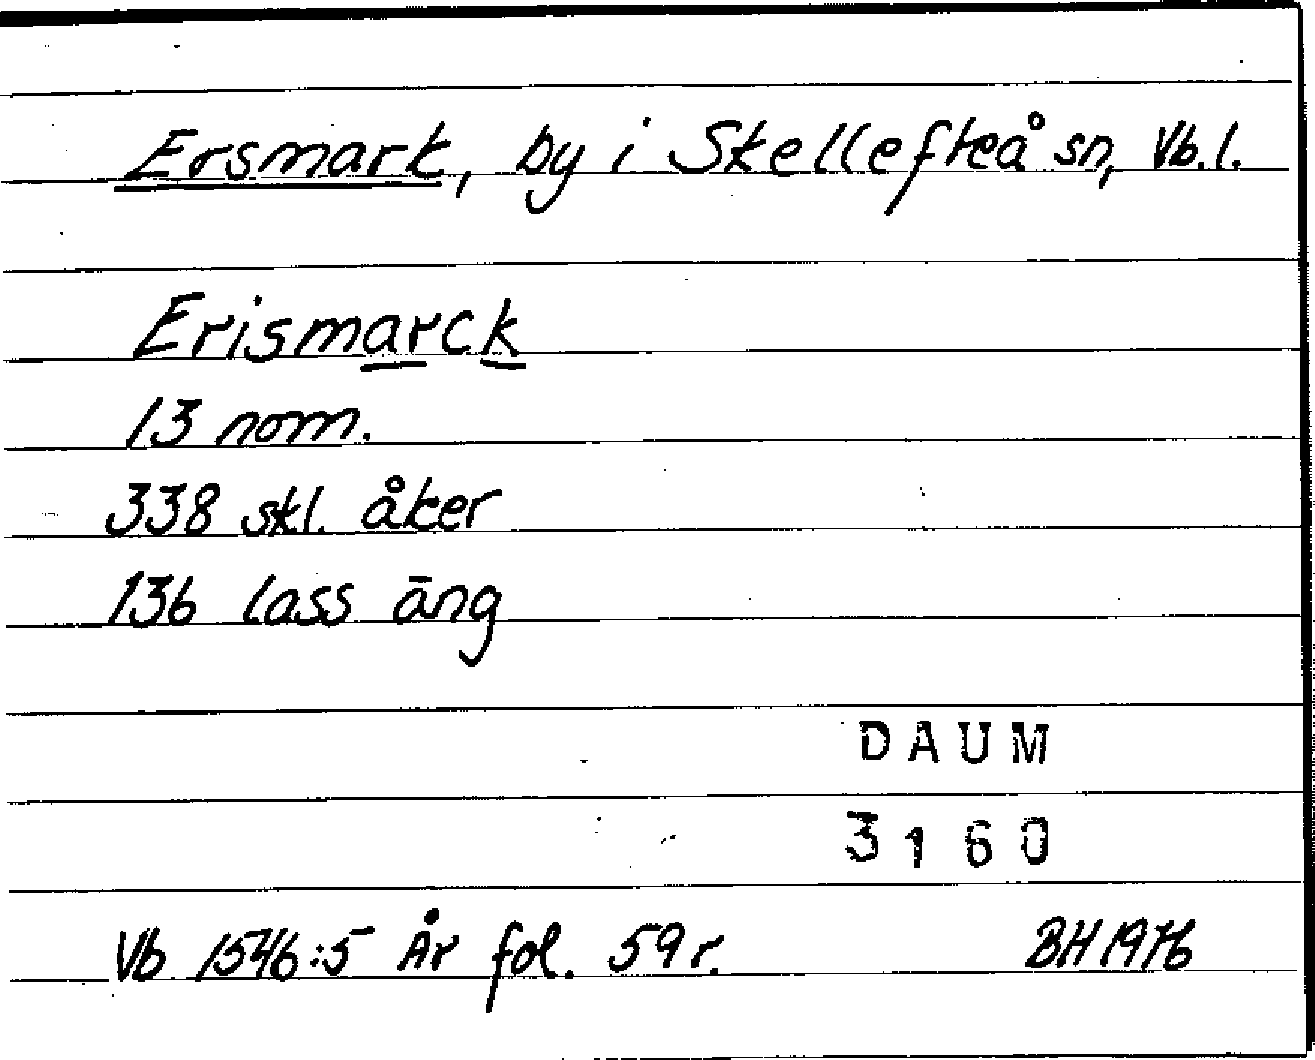 Ersmark, by i Skellefteå sn, Vb. l.
Erismarck
13 nom.
338 skl. åker
136 lass äng
DAUM
3160
Vb 1546:5 År fol. 59 r. BH 1976